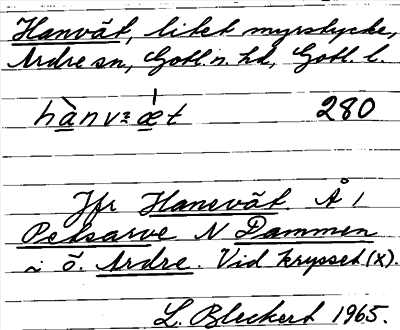 Hanvät, litet myrstycke,
Ardre sn, Gotl. n. hd, Gotl. l.
hànv=æt 280
Jfr Hanevät Å 1
Petsarve N Dammen
i ö. Ardre. Vid krysset (x).
L. Bleckert 1965.